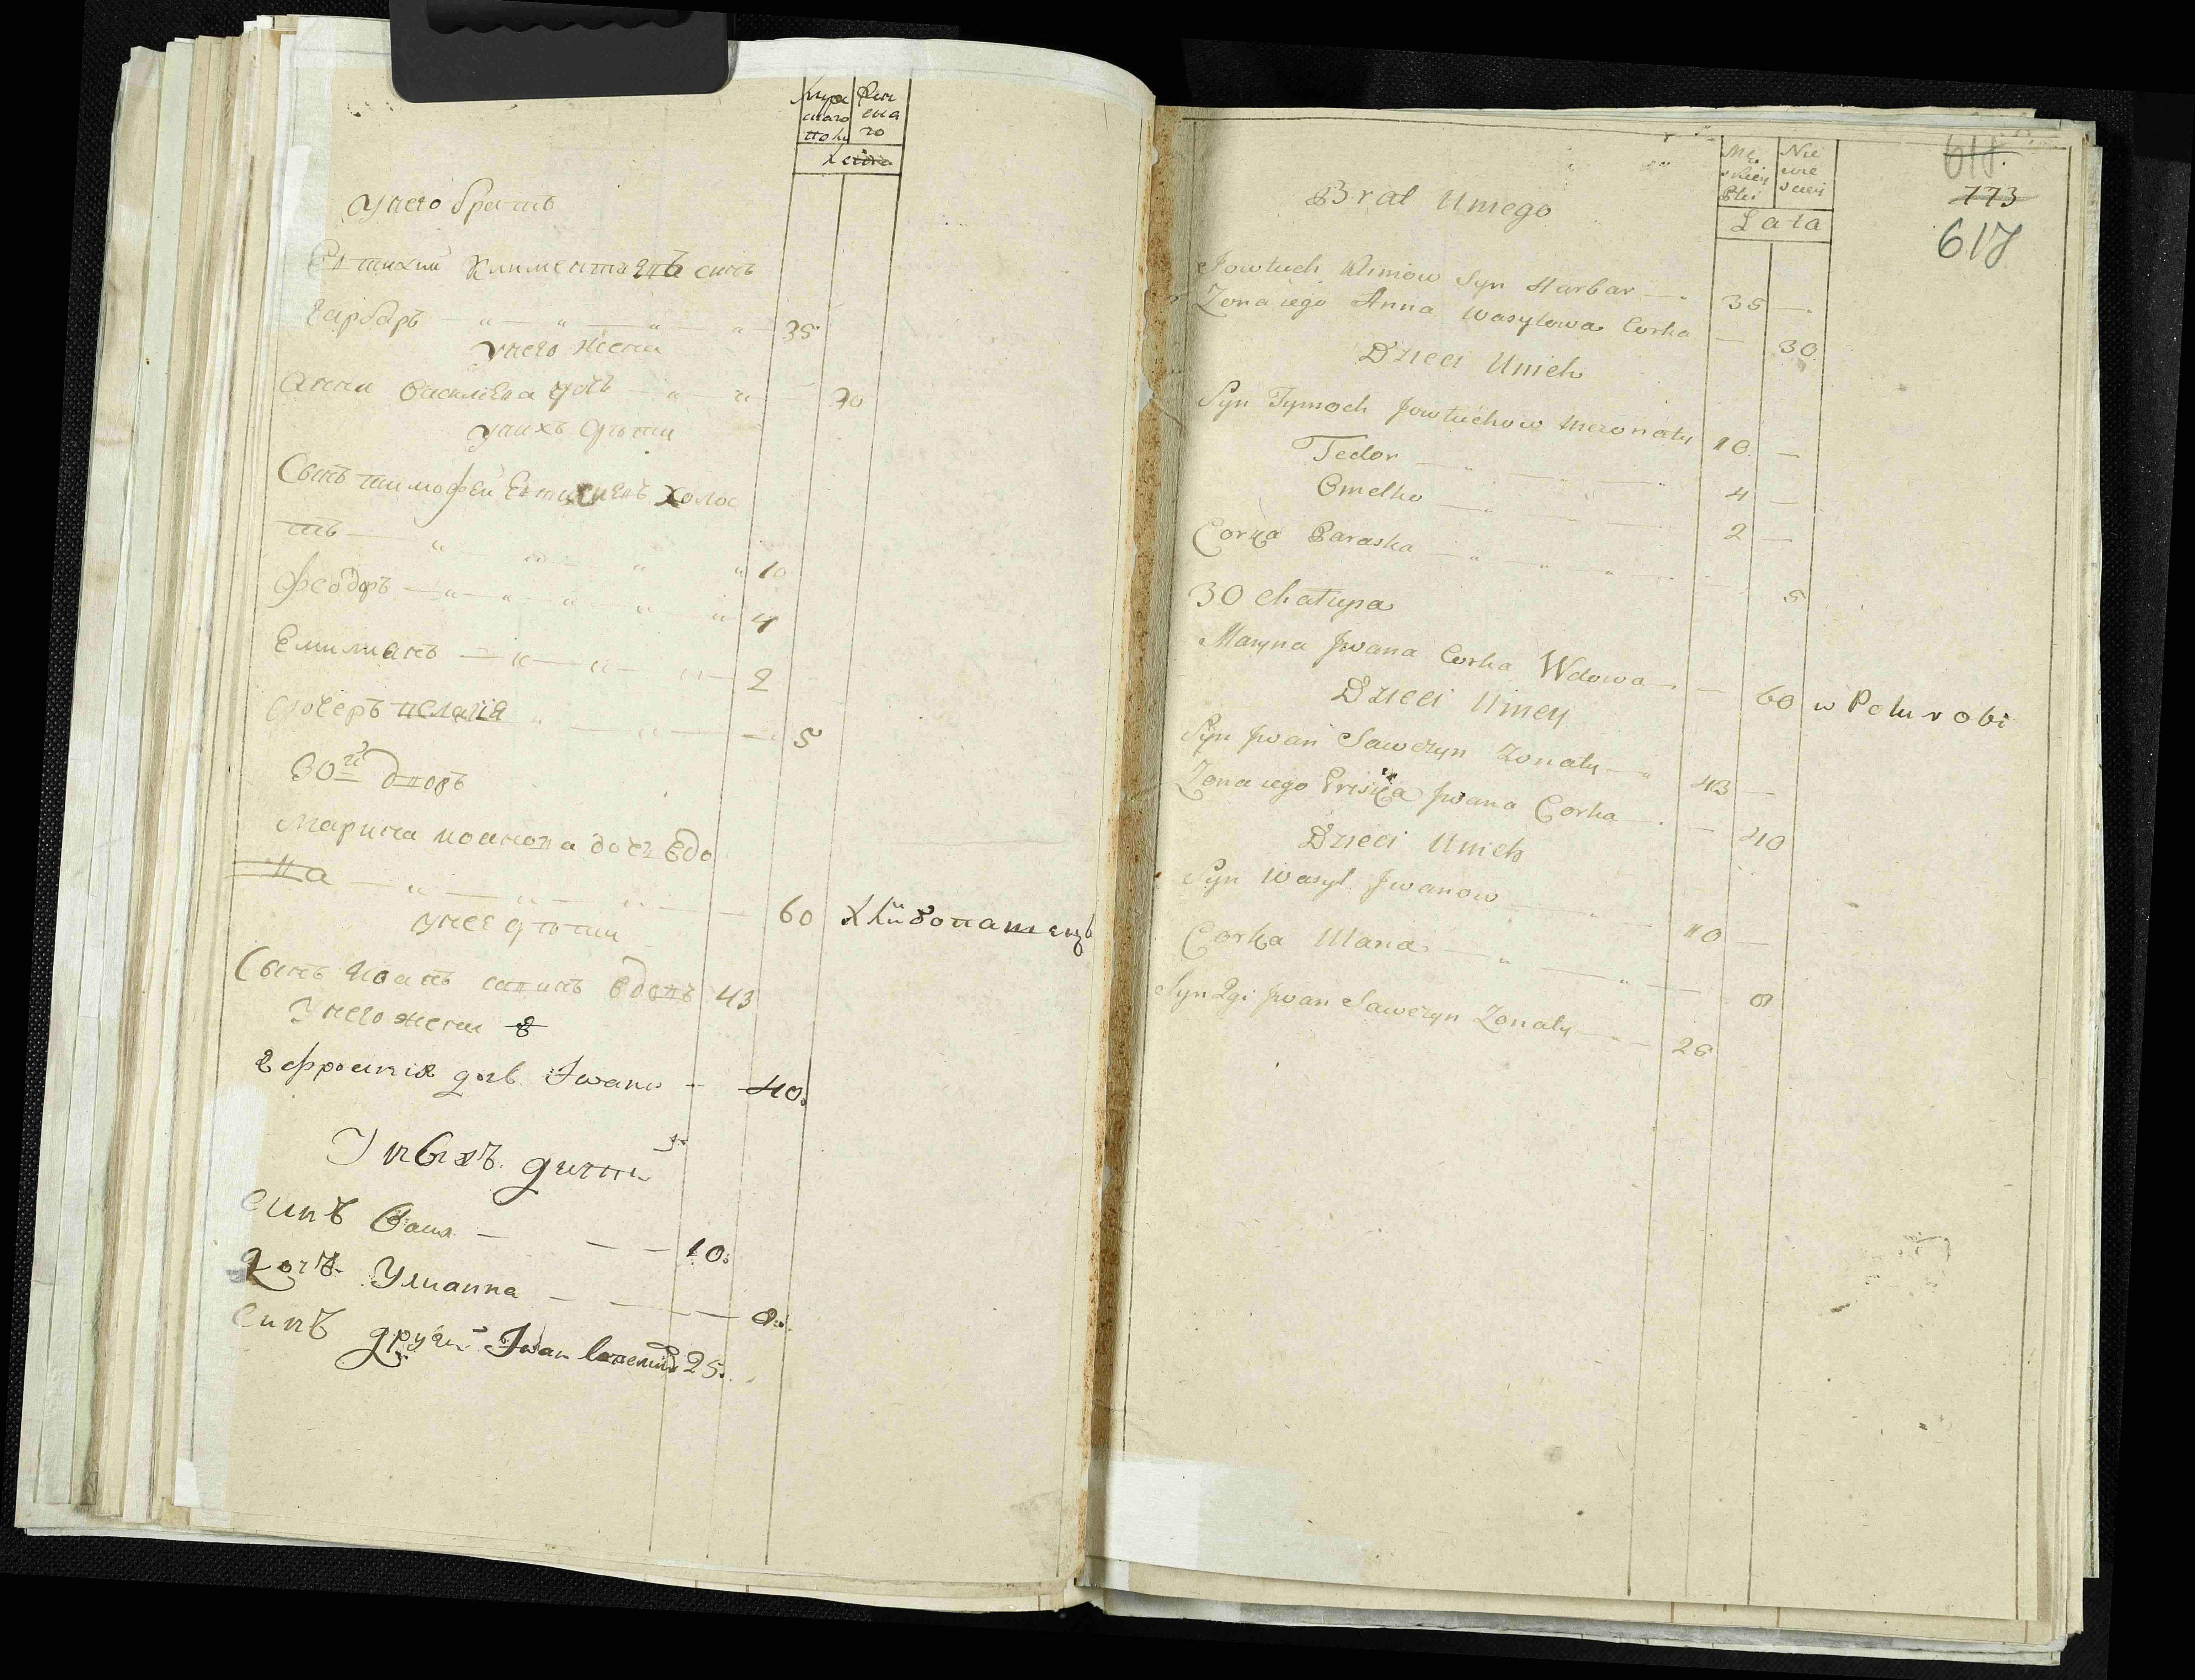 Муже
скаго
полу
Жен
ска
го
Лета
у него братъ
Евтихий Климентиевъ синъ
Гарбаръ — " — " — " — " — 35
у него жена
Анна Василиева дочь — " — " 30
у нихъ дѣти
Сынъ Тимофей Евтихиевъ холос
тъ — " — " — " — " 10
Феодоръ — " — " — " — " — " 4
Емилианъ — " — " — " — 2
дочеръ Пелагія " — " — 5
30й дворъ
Марина Иоанова дочь вдо
ва — " — " — " — 60
у нее дѣти
Сынъ Иоанъ Савинъ вдовъ 43
у него жена
Ефросинія дочь Iwana — 40.
У нихъ дити
Синъ Васил — — — 10.
Дочъ Улианна — — — 8.
Синъ другий Iwan 25.
618.
773
617
Męskiey
Płci
Nie
wie
sciey
Lata
Brat Uniego
Jowtuch Klimow Syn Harbar — 35 —
Zona iego Anna Wasylowa Corka — 30
Dzieci Unich
Syn Tymoch Jowtuchow niezonaty 10 —
Fedor — " — 4 —
Omelko — " — 2 —
Corka Paraska — " — " — " — 5
30 Chałupa
Maryna Jwana Corka Wdowa — — 60 w Poturobi
Dzieci Uniey
Syn Jwan Saweryn Zonaty — " 43 —
Zona iego Priska Jwana Corka — . — 40
Dzieci Unich
Syn Wasyl Jwanow — " — 10 —
Corka Ulana — " — " — 8
Syn 2gi Jwan Saweryn Zonaty — " — 25